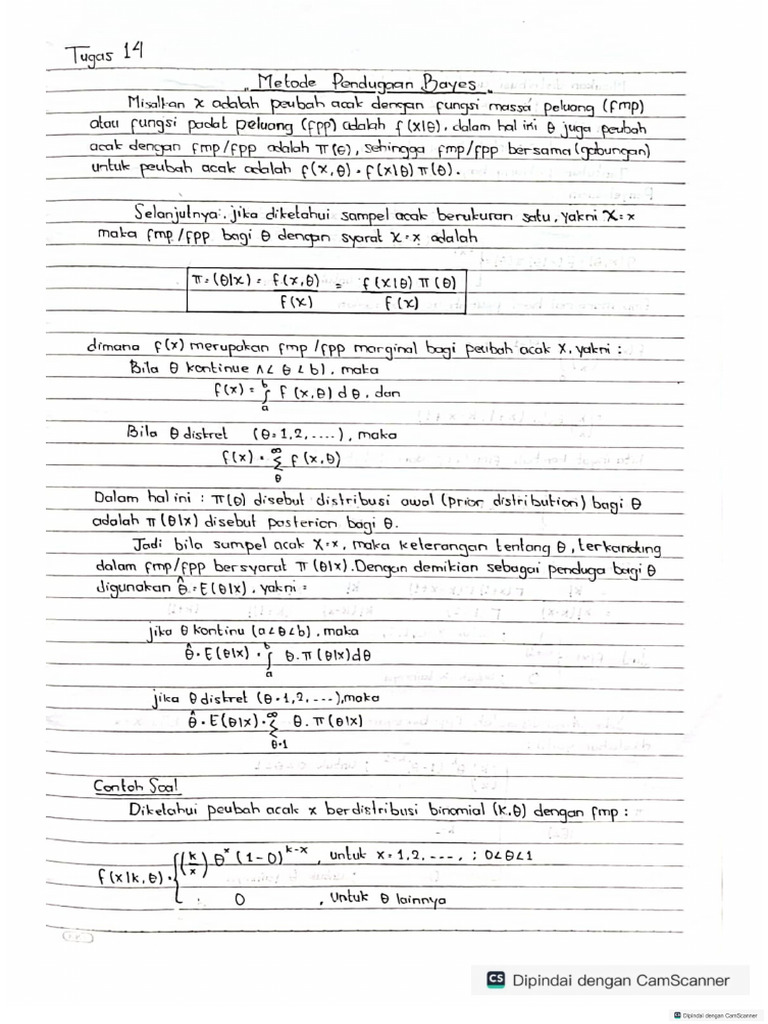 Tugas 14
"Metode Pendugaan Bayes"
Misalkan x adalah peubah acak dengan fungsi massa peluang (fmp)
atau fungsi padat peluang (fpp) adalah f(x|θ), dalam hal ini θ juga peubah
acak dengan fmp/fpp adalah π(θ), sehingga fmp/fpp bersama (gabungan)
untuk peubah acak adalah f(x,θ) = f(x|θ) π(θ).
Selanjutnya, jika diketahui sampel acak berukuran satu, yakni X=x
maka fmp/fpp bagi θ dengan syarat X=x adalah
π=(θ|x) = f(x,θ) / f(x) = f(x|θ) π(θ) / f(x)
dimana f(x) merupakan fmp/fpp marginal bagi peubah acak X, yakni :
Bila θ kontinue ∧< θ < b), maka
f(x) = ∫_a^b f(x,θ) dθ, dan
Bila θ diskret (θ=1,2,....), maka
f(x) = Σ_θ^∞ f(x,θ)
Dalam hal ini : π(θ) disebut distribusi awal (prior distribution) bagi θ
adalah π(θ|x) disebut posterion bagi θ.
Jadi bila sumpel acak X=x, maka keterangan tentang θ, terkandung
dalam fmp/fpp bersyarat π(θ|x). Dengan demikian sebagai penduga bagi θ
digunakan θ̂ = E(θ|x), yakni =
jika θ kontinu (a<θ<b), maka
θ̂ = E(θ|x) = ∫_a^b θ. π(θ|x)dθ
jika θ diskret (θ=1,2,---), maka
θ̂ = E(θ|x) = Σ_{θ=1}^∞ θ. π(θ|x)
Contoh Soal
Diketahui peubah acak x berdistribusi binomial (k,θ) dengan fmp :
f(x|k,θ) = { (k/x) θ^x (1-θ)^{k-x}, untuk x=1,2,----, ; 0<θ<1
0 , Untuk θ lainnya
CS Dipindai dengan CamScanner
CS Dipindai dengan CamScanner